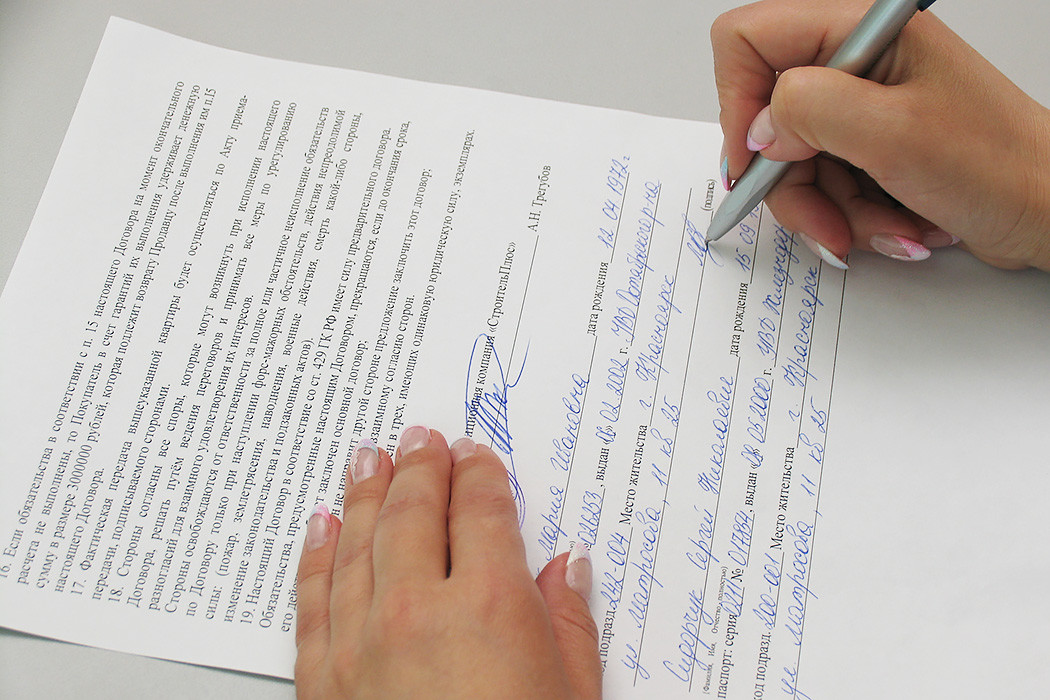 16. Если обязательства в соответствии с п. 15 настоящего Договора на момент окончательного
расчета не выполнены, то Покупатель в счет гарантий их выполнения удерживает денежную
сумму в размере 3000000 рублей, которая подлежит возврату Продавцу после выполнения им п.15
настоящего Договора.
17. Фактическая передача вышеуказанной квартиры будет осуществляться по Акту приема-
передачи, подписываемого сторонами.
18. Стороны согласны все споры, которые могут возникнуть при исполнении настоящего
Договора, решать путём ведения переговоров и принимать все меры по урегулированию
разногласий для взаимного удовлетворения их интересов.
Стороны освобождаются от ответственности за полное или частичное неисполнение обязательств
по Договору только при наступлении форс-мажорных обстоятельств, действия непреодолимой
силы: (пожар, землетрясения, наводнения, военные действия, смерть какой-либо стороны,
изменение законодательства и подзаконных актов).
19. Настоящий Договор в соответствие со ст. 429 ГК РФ имеет силу предварительного договора.
Обязательства, предусмотренные настоящим Договором, прекращаются, если до окончания срока,
его дей заключен основной договор:
не направит другой стороне предложение заключить этот договор;
взаимному согласию сторон.
ен в трех, имеющих одинаковую юридическую силу, экземплярах.
компания «СтроительПлюс»
А.Н. Трегубов
Мария Ивановна дата рождения 12 04 1972 г
026253, выдан «18» 02 2002 г.
д подразд. 242-004 Место жительства г. Красноярс
ул. Матросова, 11 кв 25
(подпись)
Сидорчук Сергей Николаеви дата рождения 15 09
(Фамилия, Имя, Отчество полностью)
паспорт: серия № 017884, выдан « 06 2000 г.
од подразд. 200-001 Место жительства г. Красноярск
ул. Матросова, 11 кв 25